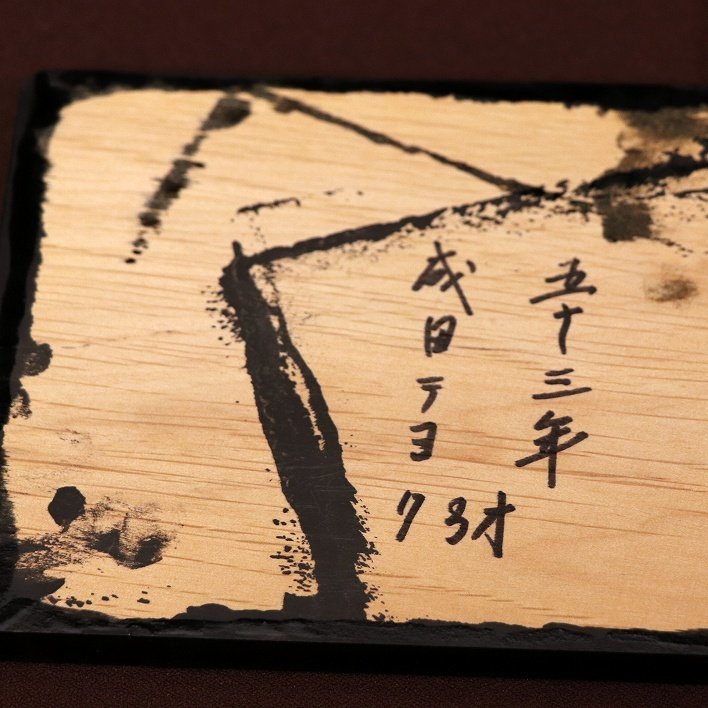 五十三年
成田テヨ
73才